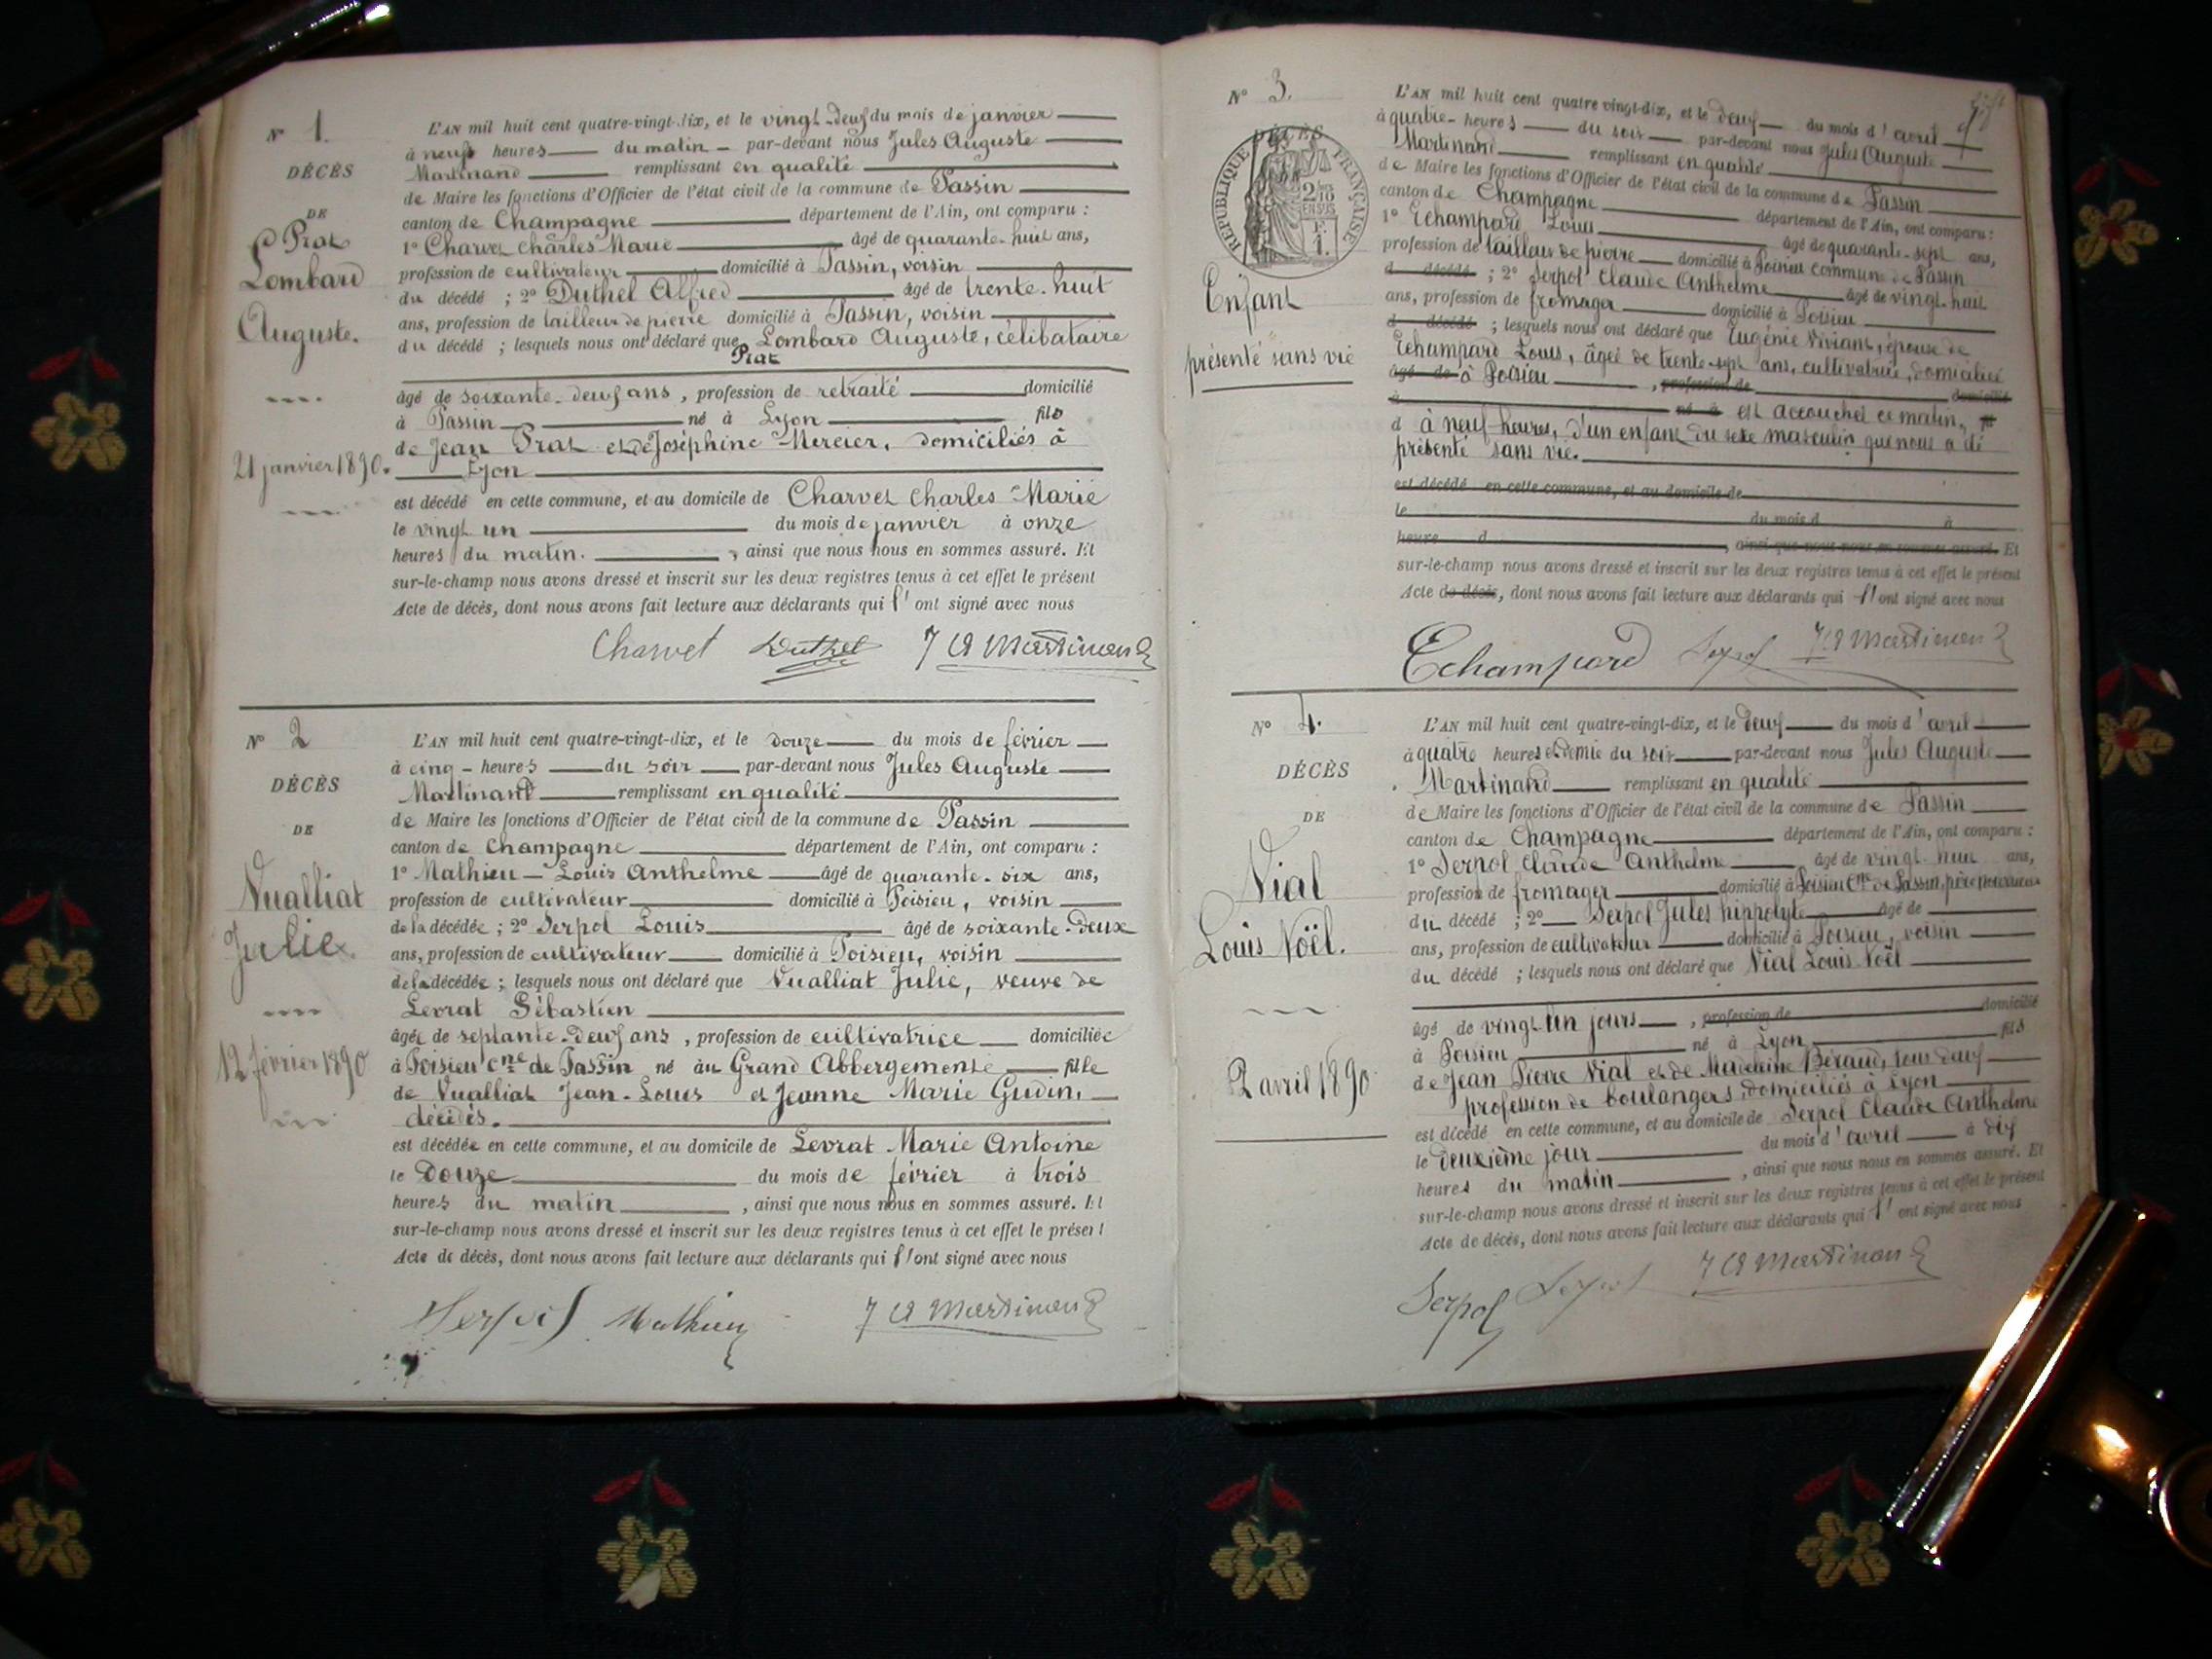 N° 1.
DÉCÈS
DE
Prat
Lombard
Auguste.
21 janvier 1890.
L'AN mil huit cent quatre-vingt-dix, et le vingt-deux du mois de janvier
à neuf heures du matin par-devant nous Jules Auguste
Martinand remplissant en qualité
de Maire les fonctions d'Officier de l'état civil de la commune de Passin
canton de Champagne département de l'Ain, ont comparu :
1° Charvet Charles Marie âgé de quarante-huit ans,
profession de cultivateur domicilié à Passin, voisin
du décédé ; 2° Duthel Alfred âgé de trente-huit
ans, profession de tailleur de pierre domicilié à Passin, voisin
du décédé ; lesquels nous ont déclaré que Lombard Auguste, célibataire
Prat
âgé de soixante-deux ans, profession de retraité domicilié
à Passin né à Lyon fils
de Jean Prat et de Joséphine Mercier, domiciliés à
Lyon
est décédé en cette commune, et au domicile de Charvet Charles Marie
le vingt un du mois de janvier à onze
heures du matin. , ainsi que nous nous en sommes assuré. Et
sur-le-champ nous avons dressé et inscrit sur les deux registres tenus à cet effet le présent
Acte de décès, dont nous avons fait lecture aux déclarants qui l'ont signé avec nous
Charvet Duthel J A Martinand
N° 2
DÉCÈS
DE
Vualliat
Julie.
12 février 1890
L'AN mil huit cent quatre-vingt-dix, et le douze du mois de février
à cinq heures du soir par-devant nous Jules Auguste
Martinand remplissant en qualité
de Maire les fonctions d'Officier de l'état civil de la commune de Passin
canton de Champagne département de l'Ain, ont comparu :
1° Mathieu Louis Anthelme âgé de quarante-six ans,
profession de cultivateur domicilié à Poisieu, voisin
de la décédée ; 2° Serpol Louis âgé de soixante-deux
ans, profession de cultivateur domicilié à Poisieu, voisin
de la décédée ; lesquels nous ont déclaré que Vualliat Julie, veuve de
Levrat Sébastien
âgée de septante-deux ans, profession de cultivatrice domiciliée
à Poisieu Cne de Passin né au Grand Abbergement fille
de Vualliat Jean-Louis et Jeanne Marie Gudin,
décédés.
est décédée en cette commune, et au domicile de Levrat Marie Antoine
le Douze du mois de février à trois
heures du matin , ainsi que nous nous en sommes assuré. Et
sur-le-champ nous avons dressé et inscrit sur les deux registres tenus à cet effet le présent
Acte de décès, dont nous avons fait lecture aux déclarants qui l'ont signé avec nous
Serpol Mathieu J A Martinand
N° 3.
DÉCÈS
RÉPUBLIQUE FRANÇAISE
2/10
EN SUS
Enfant
présenté sans vie
L'AN mil huit cent quatre vingt-dix, et le deux du mois d'avril
à quatre heures du soir par-devant nous Jules Auguste
Martinand remplissant en qualité
de Maire les fonctions d'Officier de l'état civil de la commune de Passin
canton de Champagne département de l'Ain, ont comparu :
1° Echampard Louis âgé de quarante-sept ans,
profession de tailleur de pierre domicilié à Poisieu commune de Passin
d décédé ; 2° Serpol Claude Anthelme âgé de vingt-huit
ans, profession de fromager domicilié à Poisieu
d décédé ; lesquels nous ont déclaré que Eugénie Viviant, épouse de
Echampard Louis, âgée de trente-sept ans, cultivatrice, domiciliée
âgé de à Poisieu , profession de domicilié
à né à est accouchée ce matin,
d à neuf heures, d'un enfant du sexe masculin que nous a été
présenté sans vie.
est décédé en cette commune, et au domicile de
le du mois d à
heure d , ainsi que nous nous en sommes assuré. Et
sur-le-champ nous avons dressé et inscrit sur les deux registres tenus à cet effet le présent
Acte de décès, dont nous avons fait lecture aux déclarants qui l'ont signé avec nous
Echampard Serpol J A Martinand
N° 4.
DÉCÈS
DE
Vial
Louis Noël.
2 avril 1890
L'AN mil huit cent quatre-vingt-dix, et le deux du mois d'avril
à quatre heures et demie du soir par-devant nous Jules Auguste
Martinand remplissant en qualité
de Maire les fonctions d'Officier de l'état civil de la commune de Passin
canton de Champagne département de l'Ain, ont comparu :
1° Serpol Claude Anthelme âgé de vingt-huit ans,
profession de fromager domicilié à Poisieu Cne de Passin, père nourricier
du décédé ; 2° Serpol Jules hippolyte âgé de
ans, profession de cultivateur domicilié à Poisieu, voisin
du décédé ; lesquels nous ont déclaré que Vial Louis Noël
âgé de vingt un jours , profession de domicilié
à Poisieu né à Lyon fils
de Jean Pierre Vial et de Madeleine Béraud, tous deux
profession de boulangers, domiciliés à Lyon
est décédé en cette commune, et au domicile de Serpol Claude Anthelme
le deuxième jour du mois d'avril à dix
heures du matin , ainsi que nous nous en sommes assuré. Et
sur-le-champ nous avons dressé et inscrit sur les deux registres tenus à cet effet le présent
Acte de décès, dont nous avons fait lecture aux déclarants qui l'ont signé avec nous
Serpol Serpol J A Martinand